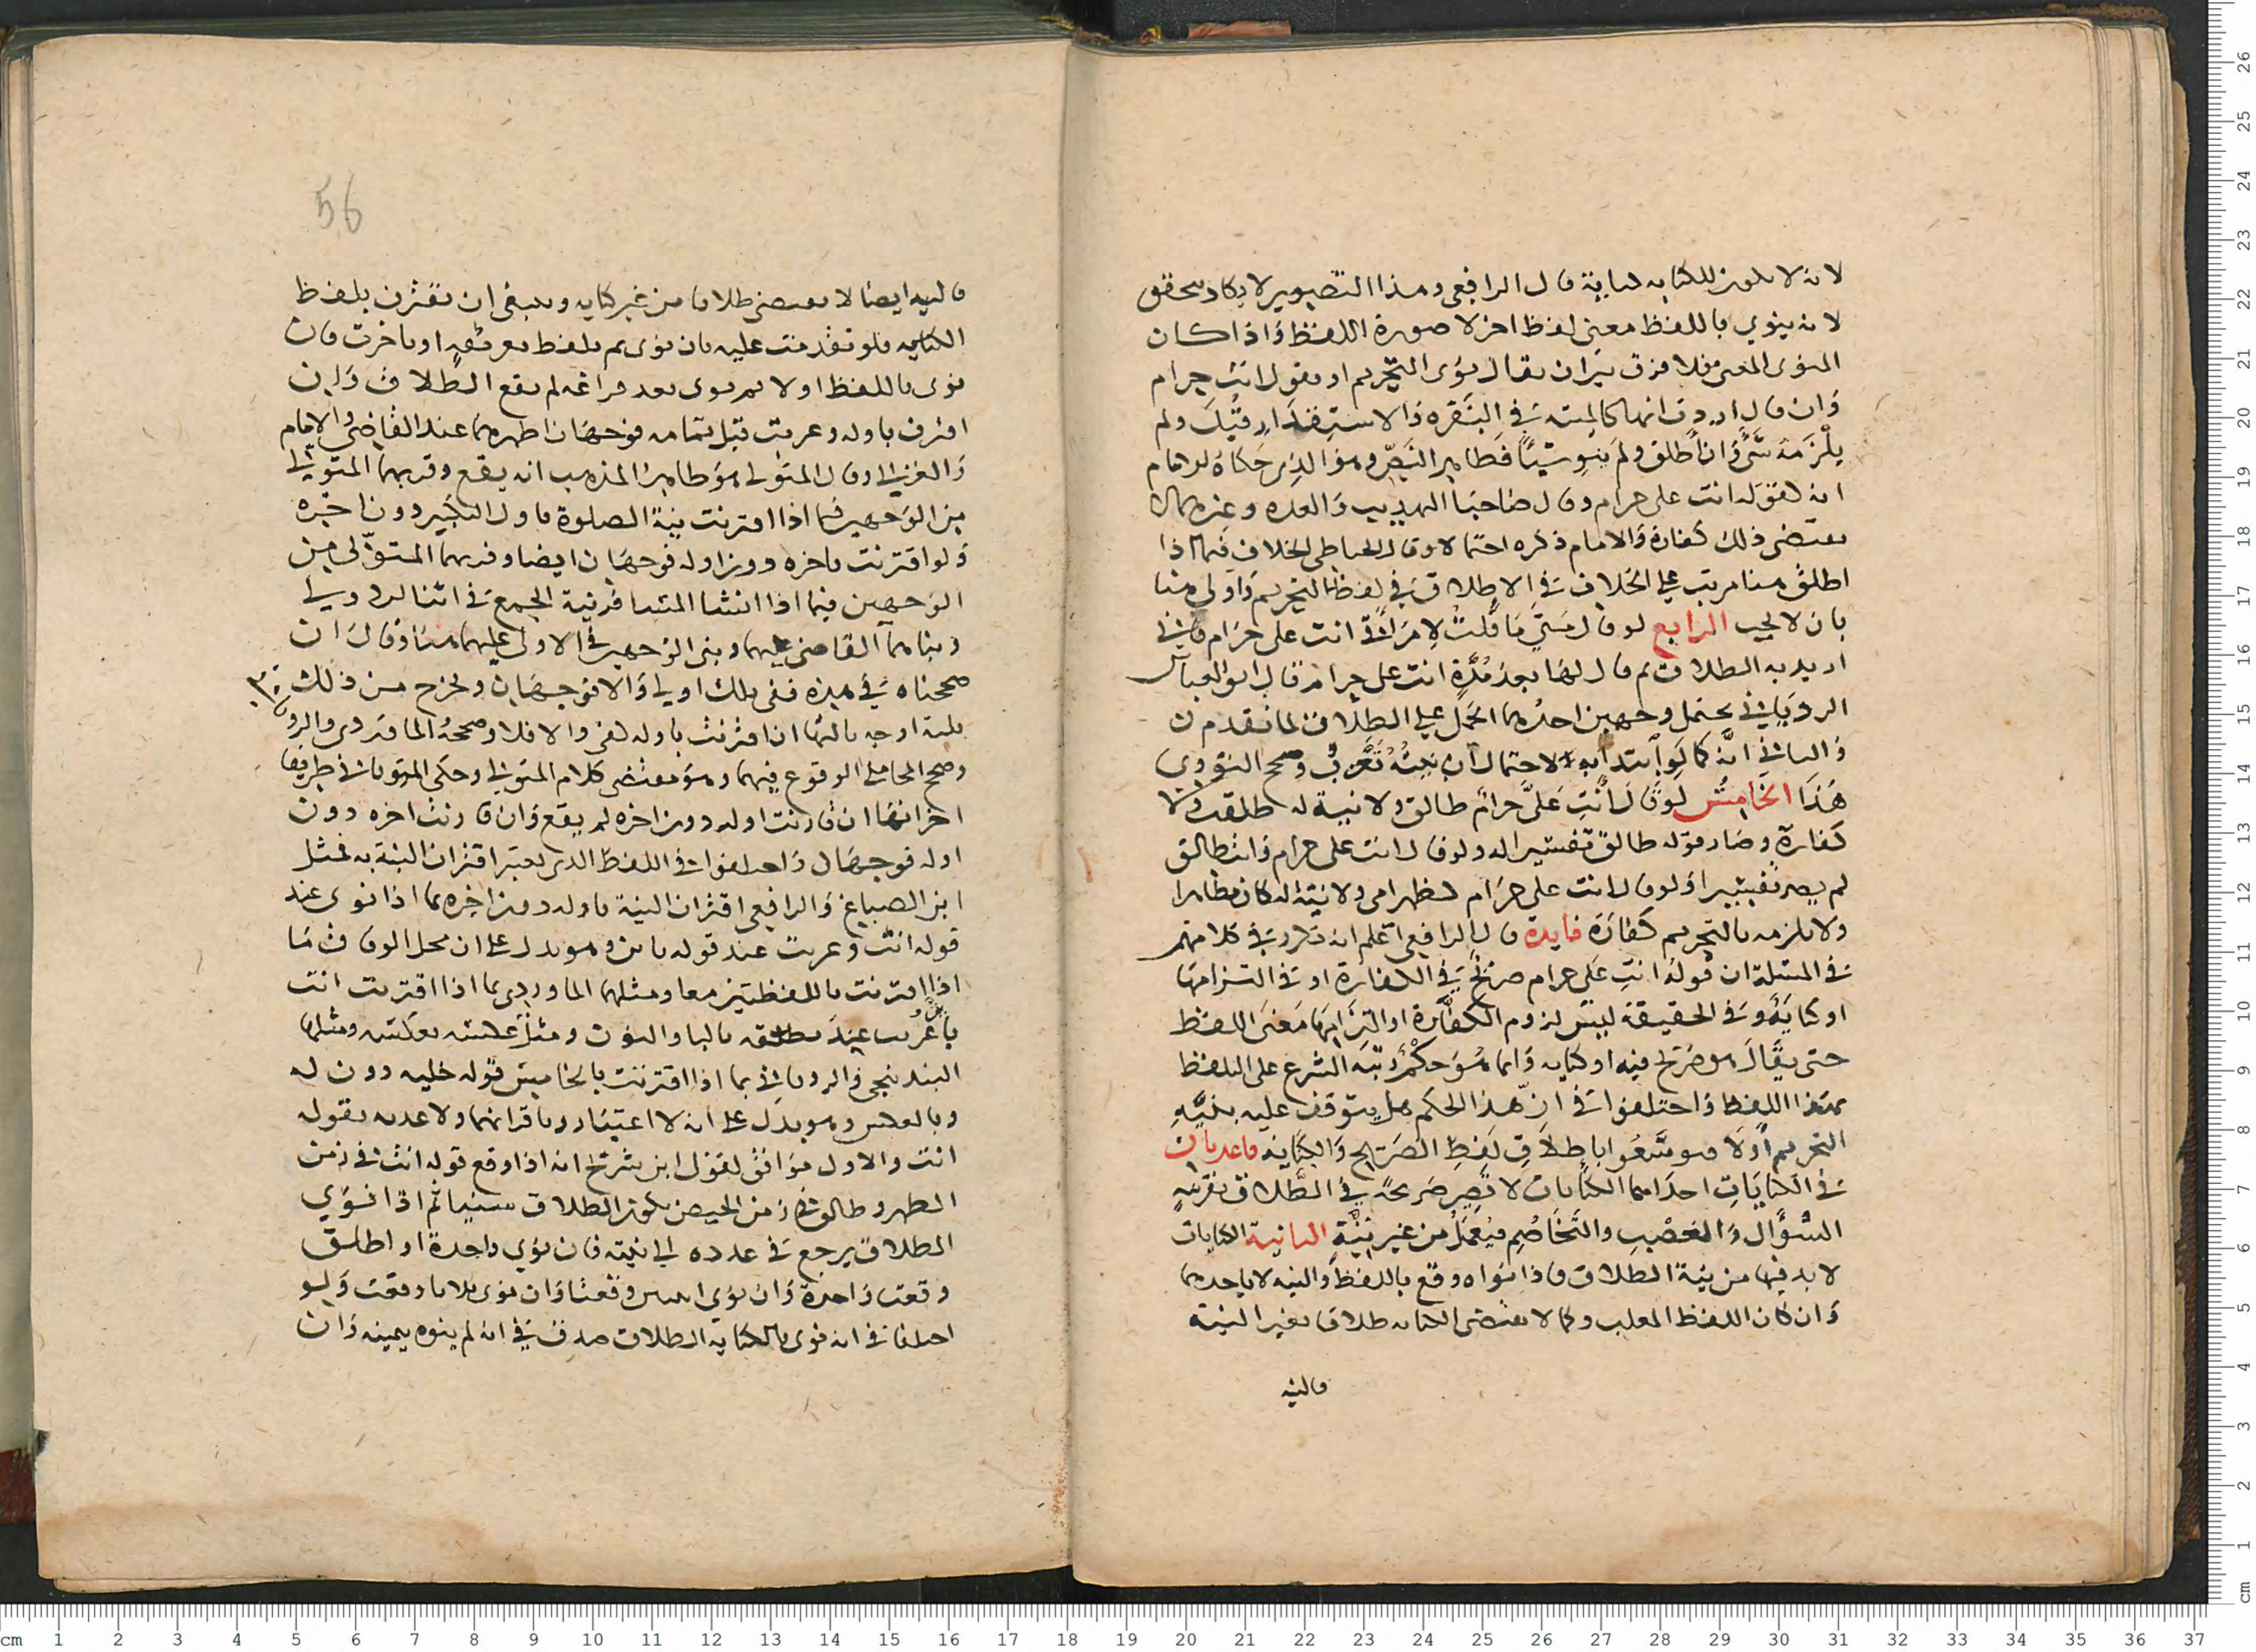 لانه لا يكون للكنايه كناية قال الرافعي وهذا التصوير لا يكاد يتحقق
لانه ينوي باللفظ معنى لفظ اخر لا صورة اللفظ واذا كان
المنوى المعنى فلا فرق بين ان يقال نوى التحريم او نقول انت حرام
وان قال اردت انها كالميتة في الاستقذار قبل ولم
يلزمه شي وان اطلق ولم ينو شيئا فظاهر النص وهو الذي حكاه الامام
انه كقوله انت على حرام وقال صاحبا التهذيب والعده وغيرهما لا
يقتضى ذلك كفارة والامام ذكره احتمالا وقال الحناطى الخلاف فيما اذا
اطلق هنا مرتب على الخلاف في الاطلاق في لفظ التحريم واولى هنا
بان لا يجب الرابع لو قال متى ما قلت لامراتى انت على حرام فاني
اريد به الطلاق ثم قال لها بعد مدة انت على حرام قال ابو العباس
الروياني يحتمل وجهين احدهما الحمل على الطلاق لما تقدم
والثاني انه كما لو ابتدا به لاحتمال ان نيته تغيرت وصحح النووى
هذا الخامس لو قال انت على حرام طالق ولا نية له طلقت ولا
كفارة وصار قوله طالق تفسيرا له ولو قال انت على حرام وانت طالق
لم يصر تفسيرا ولو قال انت على حرام كظهر امى ولا نية له كان مظاهرا
ولا يلزمه بالتحريم كفارة فايدة قال الرافعي اعلم انه تكرر في كلامهم
في المسئلة ان قوله انت على حرام صريح في الكفارة او في التزامها
او كناية وفي الحقيقة ليس لزوم الكفارة او التزامها معنى اللفظ
حتى يقال هو صريح فيه او كنايه وانما هو حكم رتبه الشرع على التلفظ
بهذا اللفظ واختلفوا في ان هذا الحكم هل يتوقف عليه بنية
التحريم اولا فتوسعوا باطلاق لفظ الصريح والكناية قاعدتان
في الكنايات احداهما الكنايات لا تصير صريحة في الطلاق بقرينة
السؤال والغضب والتخاصم فيعمل من غير نية الثانية الكنايات
لا بد فيها من نية الطلاق فاذا نواه وقع باللفظ والنيه لا باحدهما
وان كان اللفظ المغلب وكما لا يقتضى الكنايه طلاقا بغير النية
فالنيه
56
فالنيه ايضا لا تقتضى طلاقا من غير كنايه وينبغى ان تقترن بلفظ
الكنايه فلو تقدمت عليه بان نوى ثم تلفظ بعد نيته او تاخرت فان
نوى باللفظ اولا ثم نوى بعد فراغه لم يقع الطلاق وان
اقترن باوله وعربت قبل تمامه فوجهان اظهرهما عند القاضي والامام
والغزالي وقال المتولى هو ظاهر المذهب انه يقع وقربهما المتولي
من الوجهين فيما اذا اقترنت نية الصلوة باول التكبير دون اخره
ولو اقترنت باخره دون اوله فوجهان ايضا وقربهما المتولى من
الوجهين فيما اذا انشا المسافر نية الجمع في اثنا الاولى
وبناهما القاضى عليهما وبنى الوجهين في الاولى عليهما هنا وقال ان
صححناه في هذه ففى تلك اولى والا فوجهان ويخرج من ذلك
ثلثة اوجه ثالثها ان اقترنت باوله كفى والا فلا وصححه الماوردى والرويانى
وصحح المحاملى الوقوع فيهما وهو مقتضى كلام المتولي وحكى الروياني طريقا
اخر انها ان قارنت اوله دون اخره لم يقع وان قارنت اخره دون
اوله فوجهان واختلفوا في اللفظ الذى يعتبر اقتران النية به فمثل
ابن الصباغ والرافعى اقتران النية باوله دون اخره بما اذا نوى عند
قوله انت وعربت عند قوله باين وهو يدل على ان محل الوفاق ما
اذا اقترنت باللفظتين معا ومثلهما الماوردى بما اذا اقترنت انت
البندنيجى والرويانى بما اذا اقترنت بالخا من قوله خليه دون له
وبالعكس وهو يدل على انه لا اعتبار باقترانهما ولا عدمه بقوله
انت والاول موافق لقول ابن سريج انه اذا وقع قوله انت في زمن
الطهر وطالق في زمن الحيض يكون الطلاق سنيا ثم اذا نوي
الطلاق يرجع في عدده الى نيته فان نوى واحدة او اطلق
وقعت واحدة وان نوى اثنتين وقعتا وان نوى ثلاثا وقعت ولو
اختلفا في انه نوى بالكناية الطلاق صدق في انه لم ينوه بيمينه وان